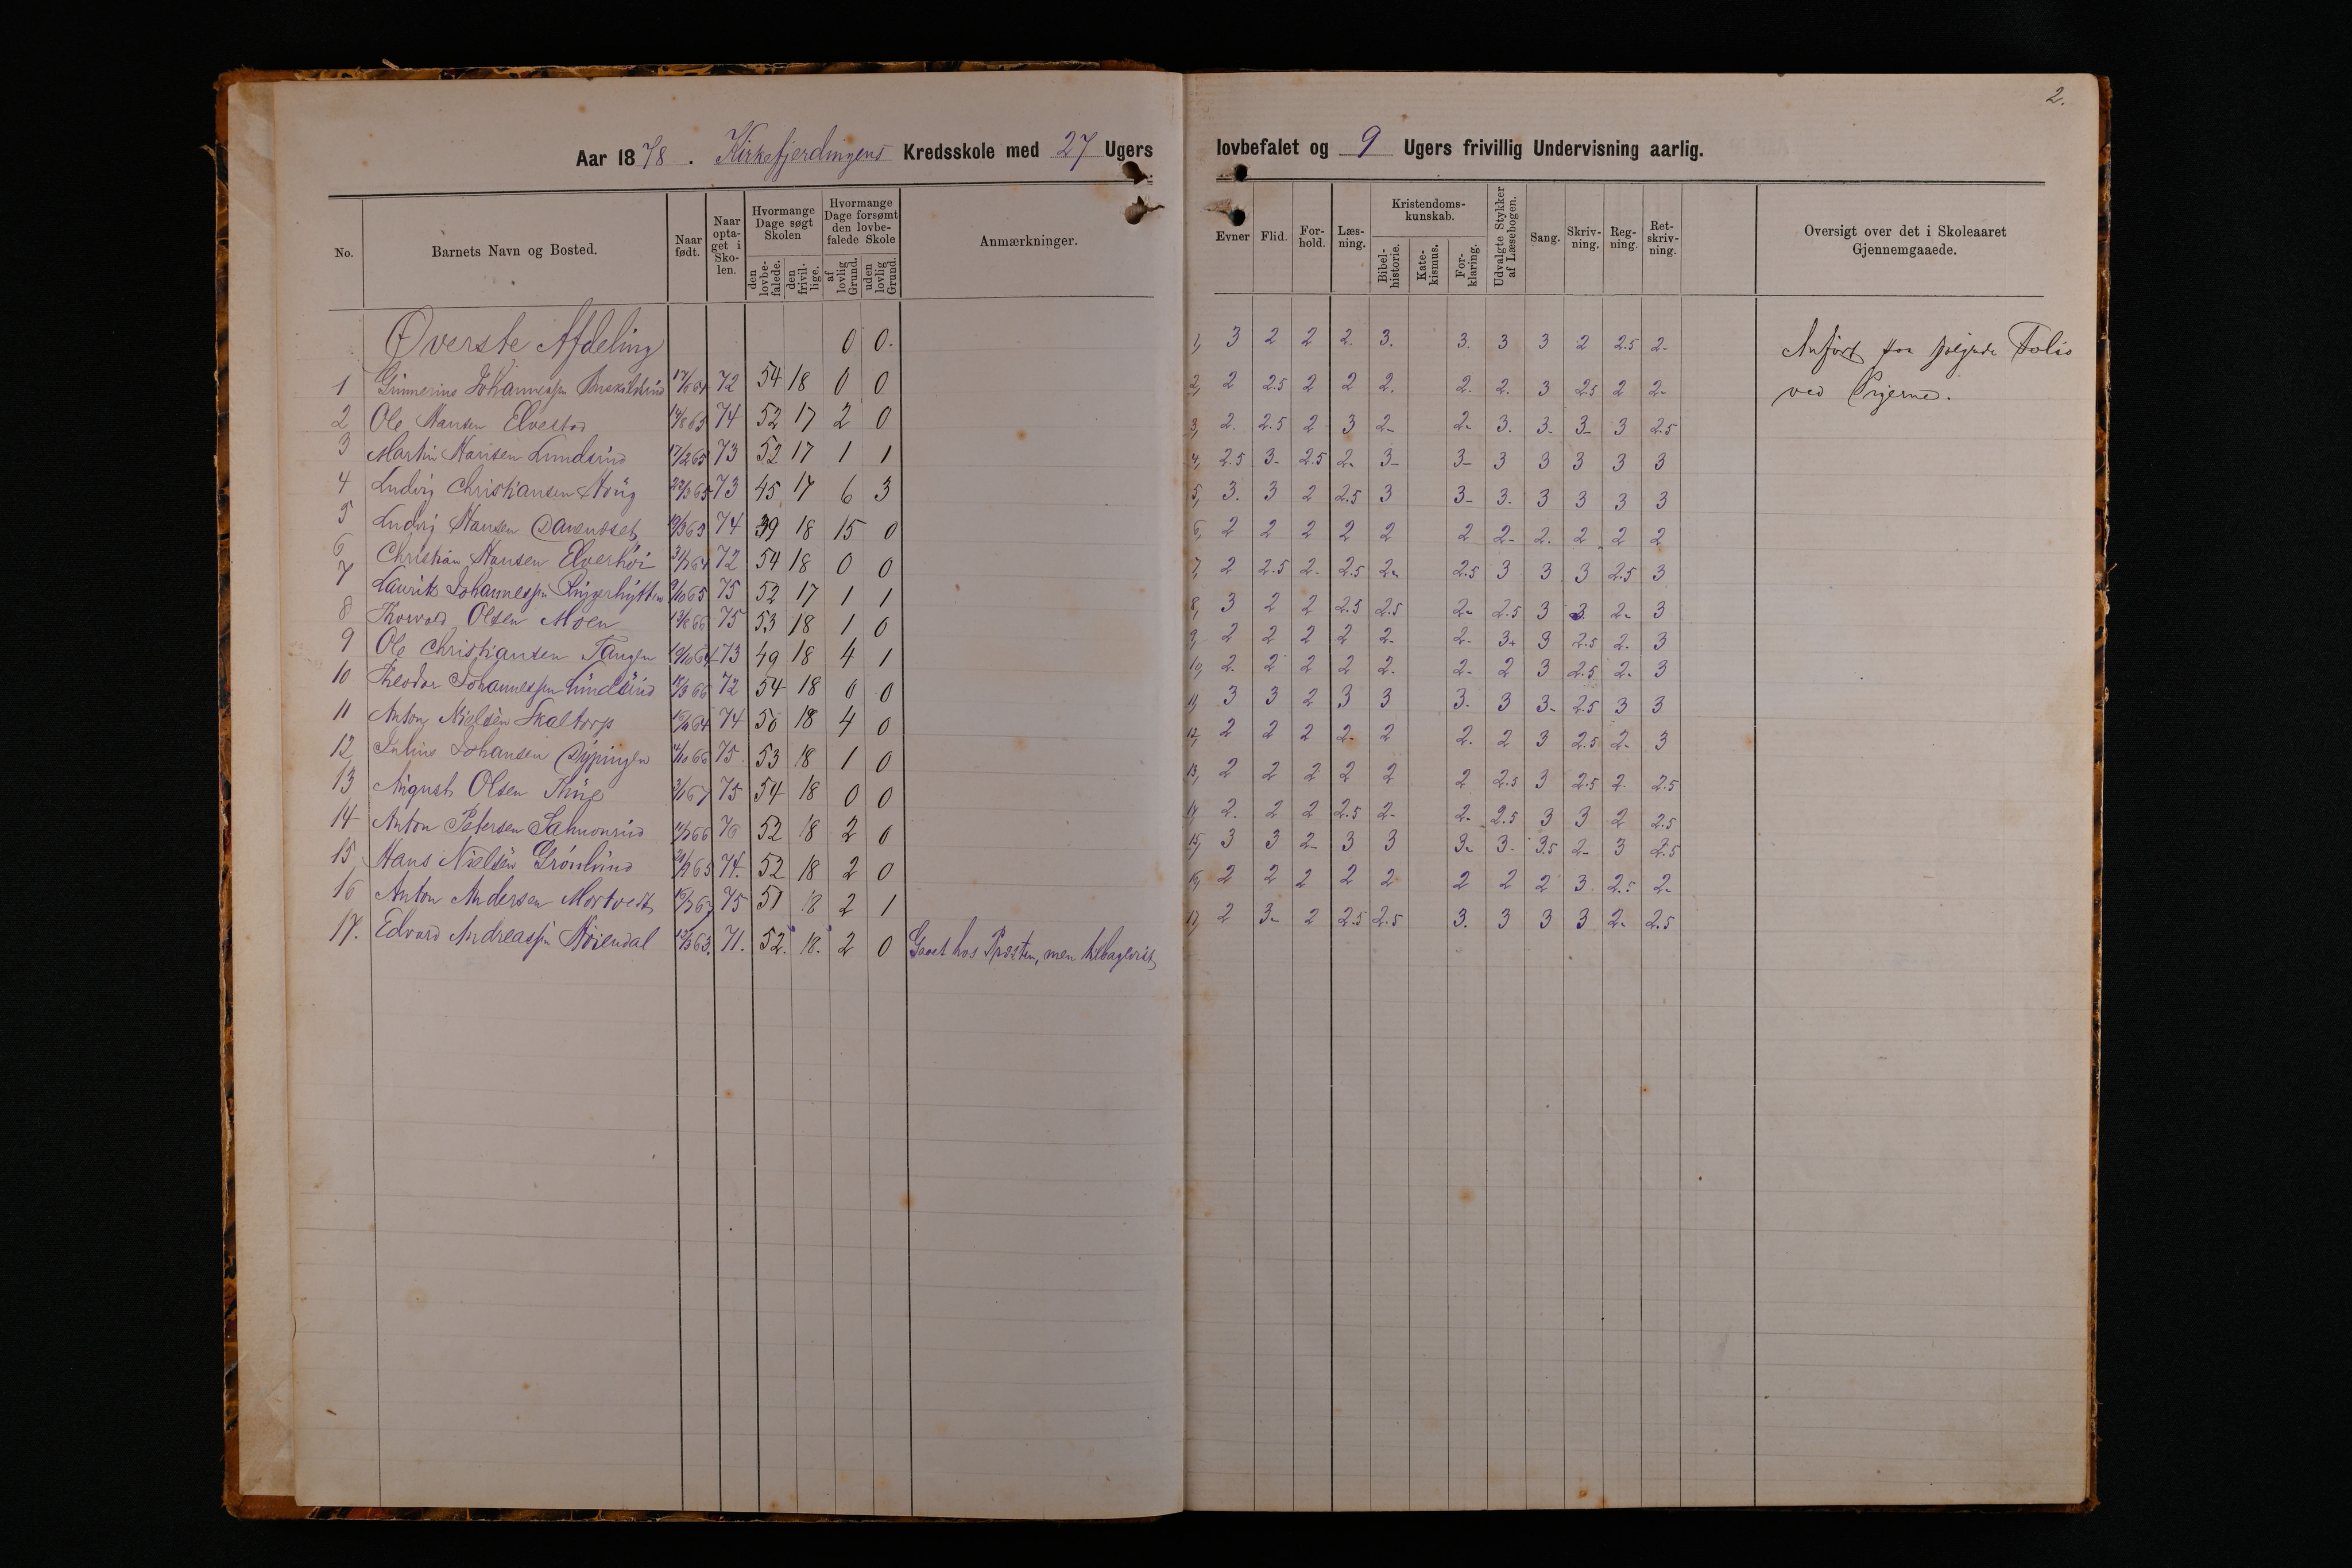 2.
Aar 1878. Kirkefjerdingens Kredsskole med 27 Ugers lovbefalet og 9 Ugers frivillig Undervisning aarlig.
No. Barnets Navn og Bosted. Naar født. Naar optaget i Skolen. Hvormange Dage søgt Skolen den lovbefalede. den frivillige. Hvormange Dage forsømt den lovbefalede Skole af lovlig Grund. uden lovlig Grund. Anmærkninger.
Evner Flid. Forhold. Læsning. Kristendomskunskab. Bibelhistorie. Katekismus. Forklaring. Udvalgte Stykker af Læsebogen. Sang. Skrivning. Regning. Retskrivning. Oversigt over det i Skoleaaret Gjennemgaaede.
Øverste Afdeling 0 0.
1 Gunnerius Johannessen 72 54 18 0 0
2 Ole Hansen Elvestad 74 52 17 2 0
3 Martin Hansen Lundsrud 17/2 65 73 52 17 1 1
4 Ludvig Christiansen Haug 73 45 17 6 3
5 Ludvig Hansen 74 39 18 15 0
6 Christian Hansen Elverhöi 72 54 18 0 0
7 Laurits Johannessen 75 52 17 1 1
8 Thorvald Olsen Moen 75 53 18 1 0
9 Ole Christiansen Tangen 73 49 18 4 1
10 Theodor Johannessen Lundsrud 72 54 18 0 0
11 Anton Nielsen Skaltorp 74 50 18 4 0
12 Julius Johansen 75 53 18 1 0
13 August Olsen 75 54 18 0 0
14 Anton Petersen Salmonrud 76 52 18 2 0
15 Hans Nielsen Grönlund 74. 52 18 2 0
16 Anton Andersen Mortvedt 75 51 18 2 1
17. Edvard Andreassen Höiendal 71. 52. 18. 2 0 Gaaet hos Præsten, men tilbagevist
1, 3 2 2 2. 3. 3. 3 3 2 2.5 2-
2, 2 2.5 2 2 2. 2. 2. 3 2.5 2 2-
3, 2. 2.5 2 3 2- 2- 3. 3- 3- 3 2.5
4, 2.5 3- 2.5 2- 3- 3- 3 3 3 3 3
5, 3. 3 2 2.5 3 3- 3. 3 3 3 3
6, 2 2 2 2 2 2 2- 2. 2 2 2
7, 2 2.5 2- 2.5 2- 2.5 3 3 3 2.5 3
8, 3 2 2 2.5 2.5 2- 2.5 3 3 2- 3
9, 2 2 2 2 2- 2- 3+ 3 2.5 2. 3
10, 2. 2 2 2 2. 2- 2 3 2.5 2- 3
11, 3 3 2 3 3 3. 3 3- 2.5 3 3
12, 2 2 2 2- 2 2. 2 3 2.5 2- 3
13, 2 2 2 2 2 2 2.5 3 2.5 2. 2.5
14, 2. 2 2 2.5 2- 2- 2.5 3 3 2 2.5
15, 3 3 2- 3 3 3- 3- 3.5 2- 3 2.5
16, 2 2 2 2 2 2 2 2 3 2.5 2-
17, 2 3- 2 2.5 2.5 3. 3 3 3 2- 2.5
Anfört paa følgende Folio
ved Pigerne.